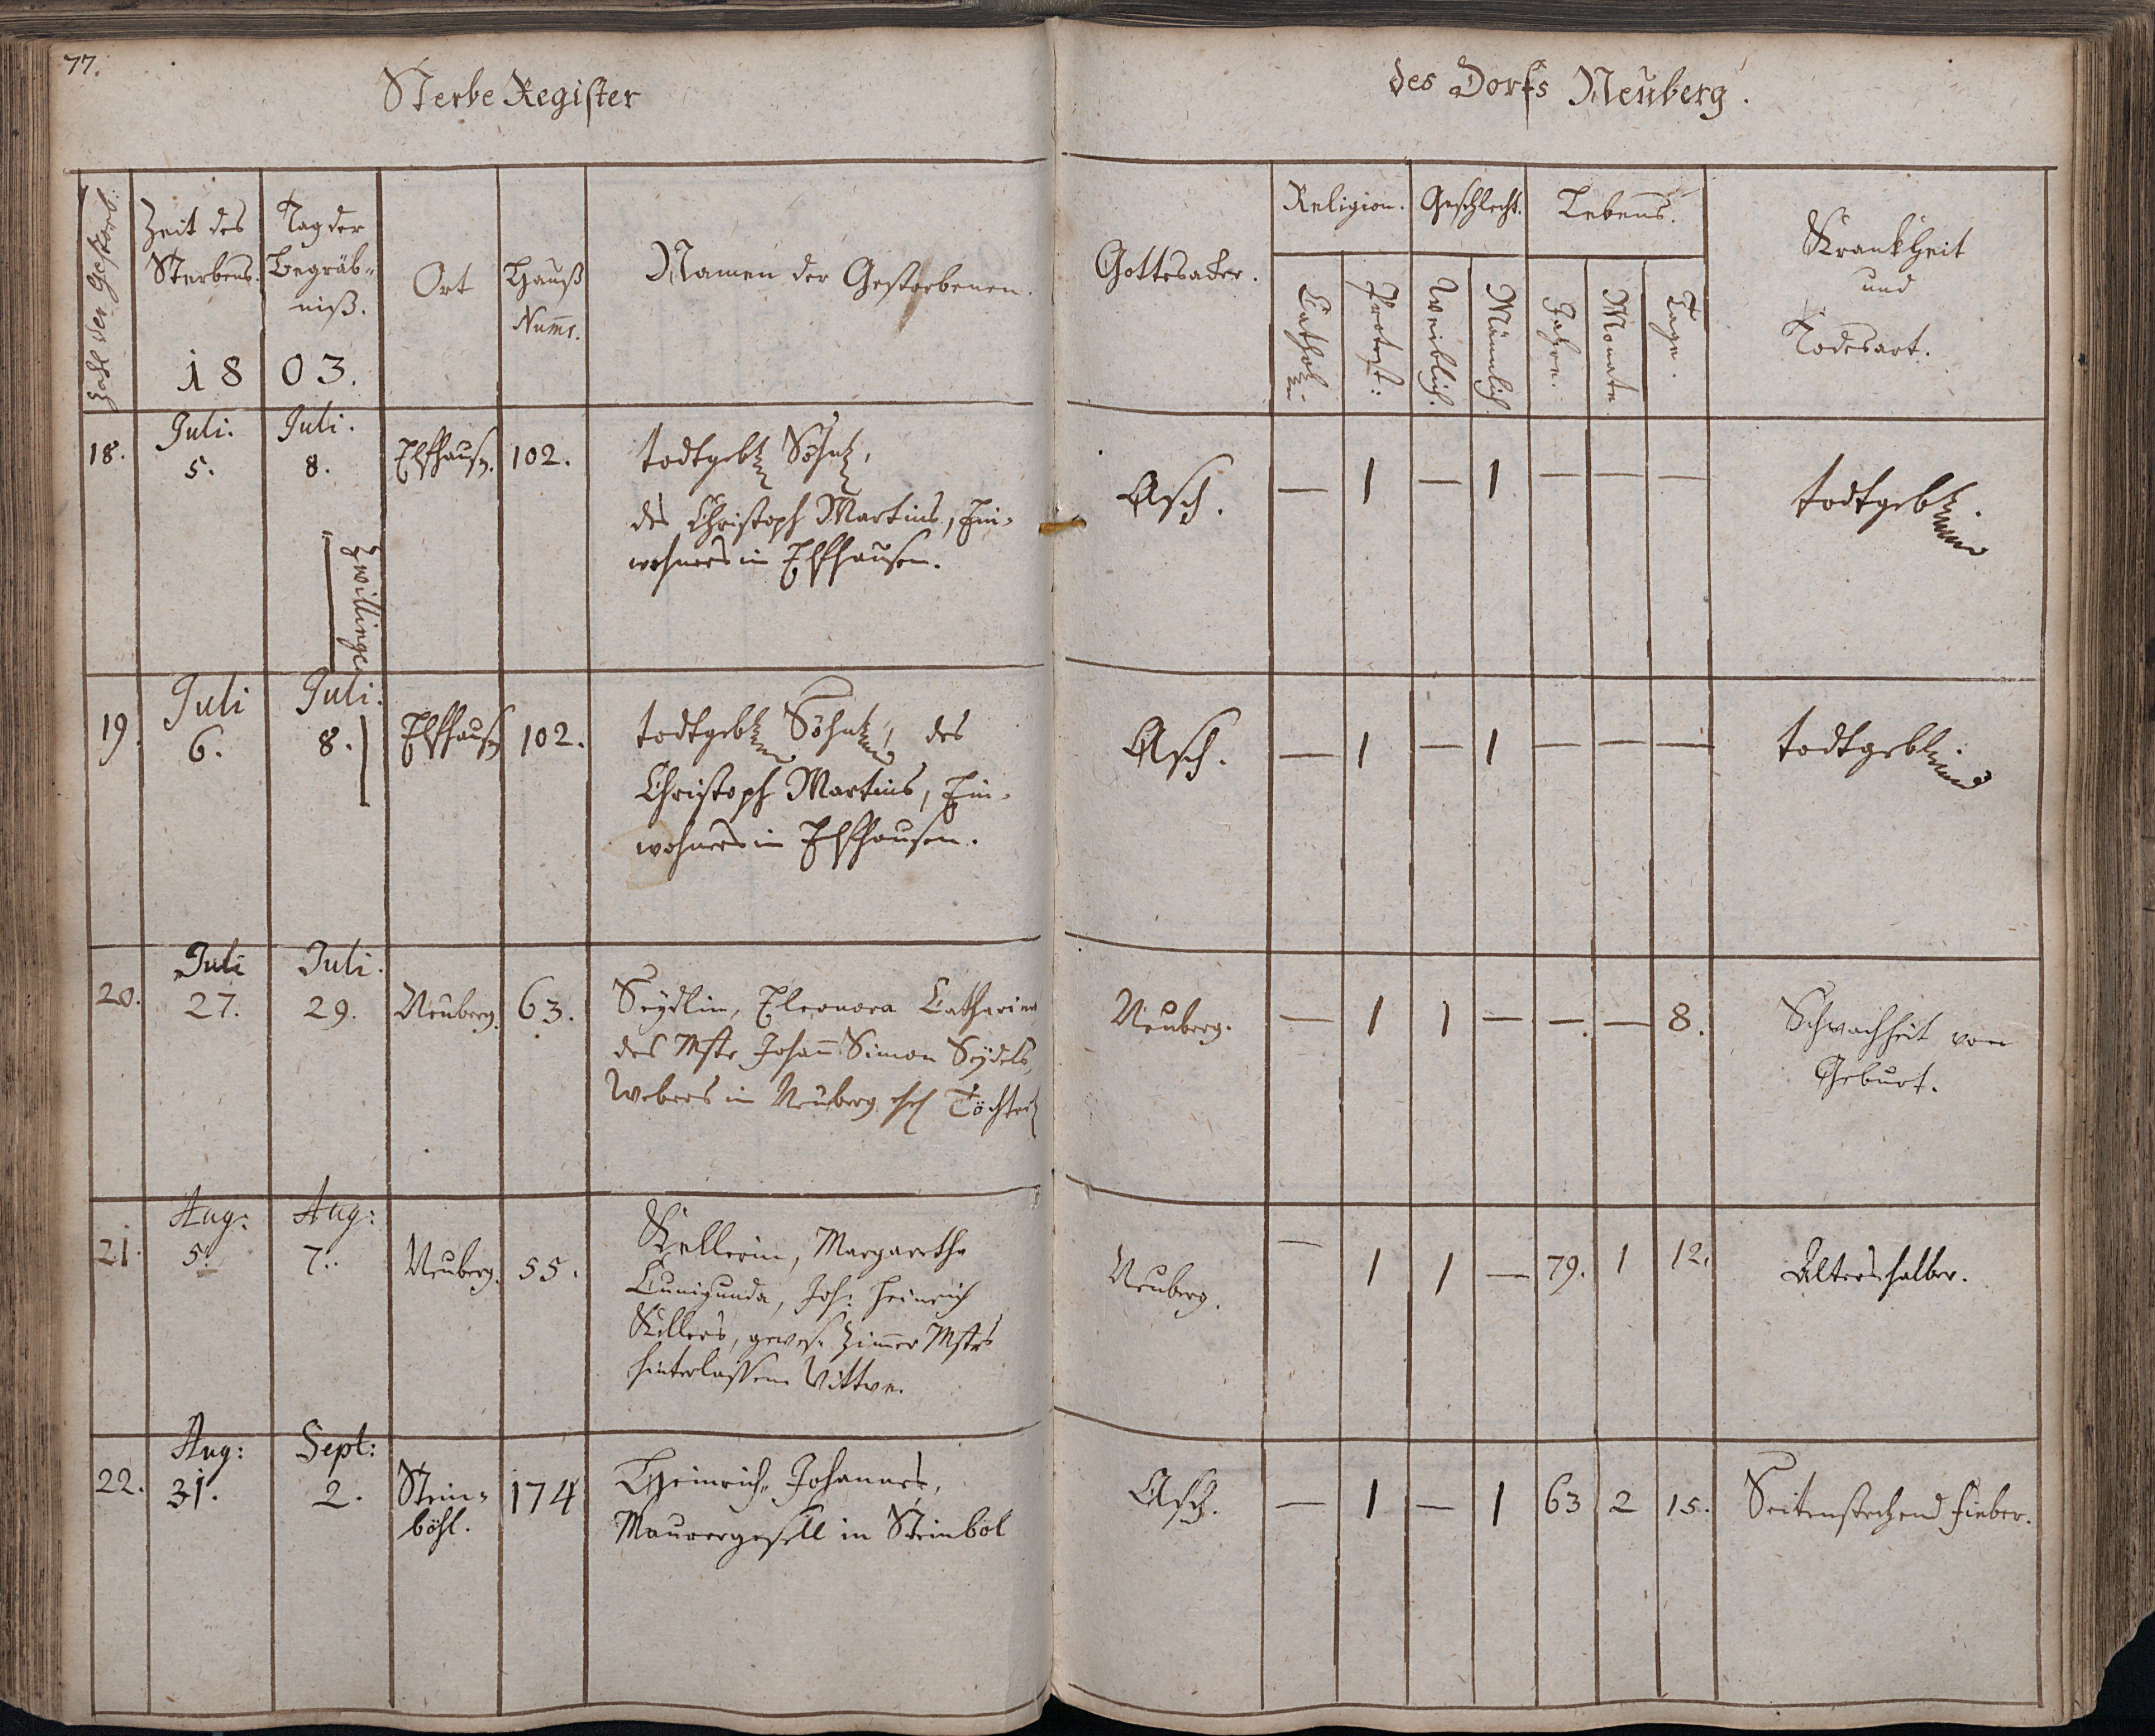 77.
Sterbe Register
des Dorfs Neuberg.
Zahl der Gestorb:
Zeit des Sterbens.
Tag der Begräb-
niß.
18 03.
Ort
Hauß Num̄r.
Namen der Gestorbenen.
Gottesacker.
Religion. Geschlecht. Lebens.
Cathol: Protest: Weiblich. Männlich. Jahre. Monate Tage.
Krankheit
und
Todesart.
18. Juli. 5. Juli. 8. 102. todtgeb. Söhnl,
des Christoph Martins, Ein-
wohners in Elfhausen.
Asch. — 1 — 1 — — — todtgeb.
Zwillinge
19. Juli 6. Juli. 8. Elfhaus 102. todtgeb. Söhnl, des
Christoph Martins, Ein-
wohners in Elfhausen.
Asch. — 1 — 1 — — — todtgebl.
20. Juli 27. Juli. 29. Neuberg. 63. Seydlin, Eleonora Catharina
des Mstr Johann Simon Seydels,
Webers in Neuberg ehel Töchterl
Neuberg. — 1 1 — — — 8. Schwachheit von
Geburt.
21. Aug: 5. Aug: 7. Neuberg. 55. Kellerin, Margaretha
Cunigunda, Joh: Heinrich
Kellers, gewes. Zimmer Mstrs
hinterlassene Wittwe.
Neuberg. — 1 1 — 79. 1 12. Alters halber.
22. Aug: 31. Sept: 2. Stein-
böhl. 174 Heinrich, Johannes,
Maurergesell in Steinböl
Asch. — 1 — 1 63 2 15. Seitenstechend Fieber.